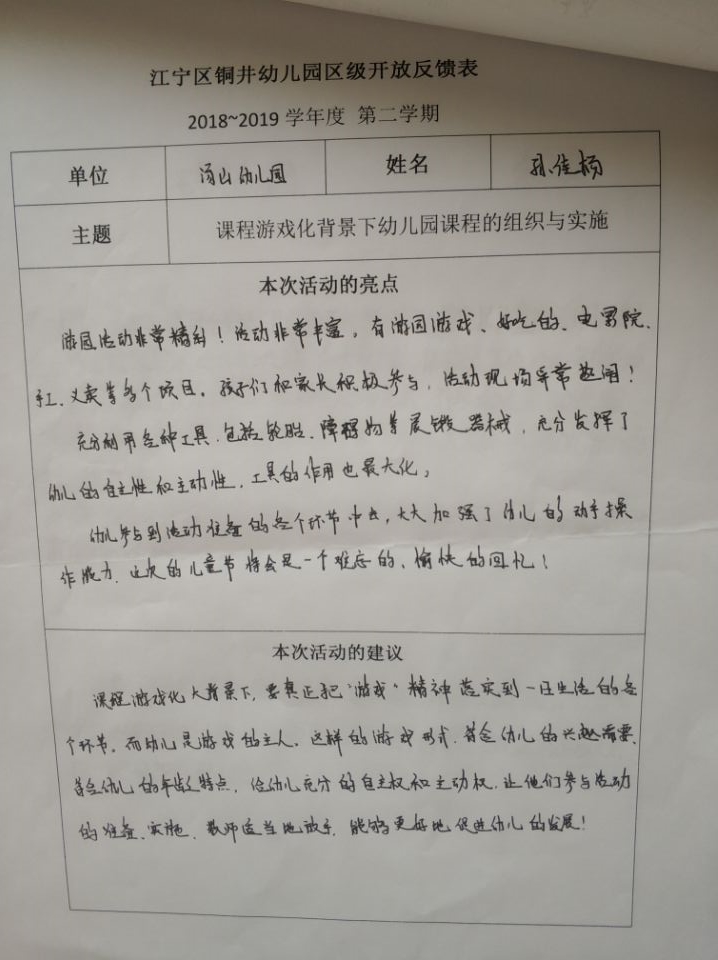 江宁区铜井幼儿园区级开放反馈表
2018~2019 学年度 第二学期
单位 汤山幼儿园 姓名 孙佳杨
主题 课程游戏化背景下幼儿园课程的组织与实施
本次活动的亮点
游园活动非常精彩！活动非常丰富，有游园游戏、好吃的、电影院、
手工、义卖等多个项目。孩子们和家长积极参与，活动现场异常热闹！
充分利用各种工具，包括轮胎、障碍物等展锻器械，充分发挥了
幼儿的自主性和主动性，工具的作用也最大化。
幼儿参与到活动准备的各个环节中去，大大加强了幼儿的动手操
作能力，这次的儿童节将会是一个难忘的、愉快的回忆！
本次活动的建议
课程游戏化大背景下，要真正把“游戏”精神落实到一日生活的各
个环节。而幼儿是游戏的主人。这样的游戏形式，符合幼儿的兴趣需要、
符合幼儿的年龄特点，给幼儿充分的自主权和主动权，让他们参与活动
的准备、实施，教师适当地放手，能够更好地促进幼儿的发展！